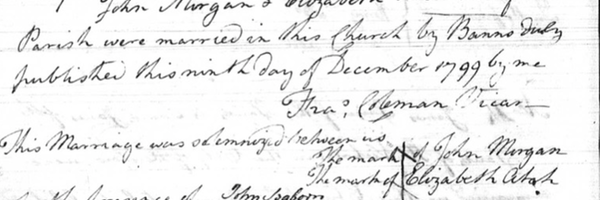 John Morgan & Elizabeth
Parish were married in this Church by Banns duly
published this ninth day of December 1799 by me
Fras. Coleman Vicar
This Marriage was solemnized between us
The mark of John Morgan
The mark of Elizabeth
In the presence of John